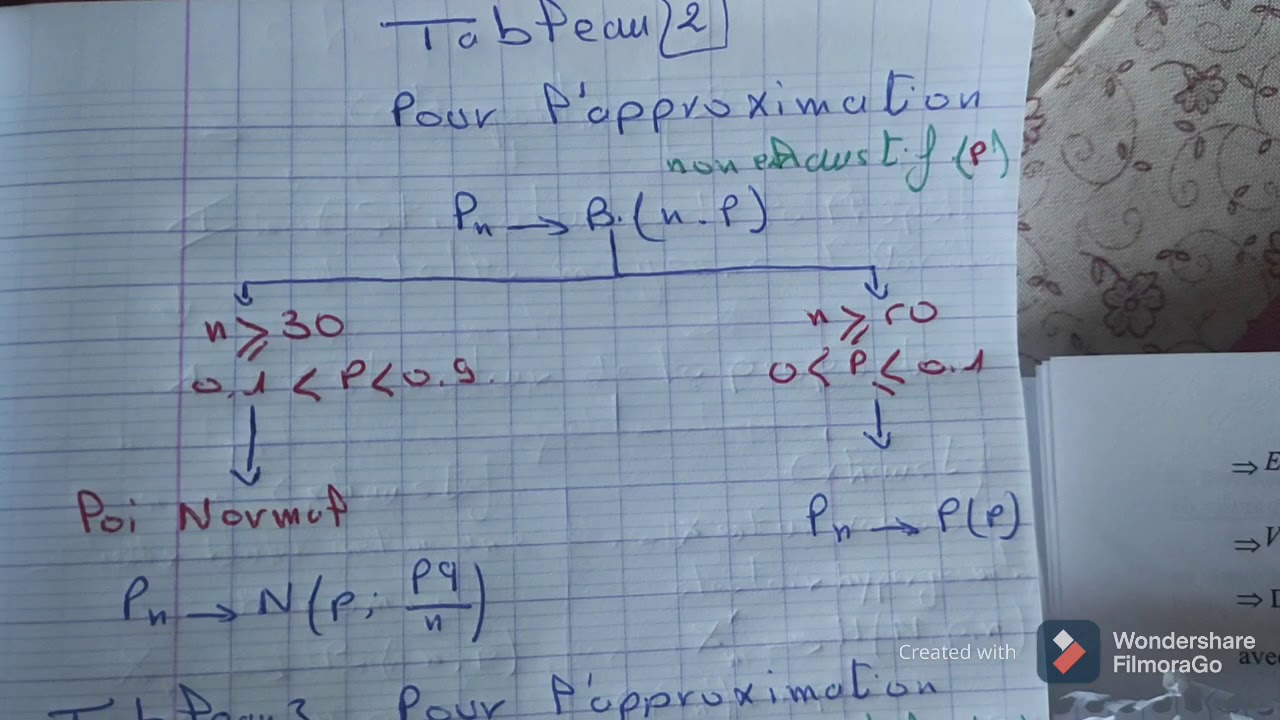 Tableau 2
Pour l'approximation
non exhaustif (P)
Pn → B.(n.p)
n ⩾ 30
n ⩾ 50
0.1 < P < 0.9.
0 < P ⩽ 0.1
Loi Normal
Pn → P(p)
Pn → N(p; pq/n)
Tableau 3 Pour l'approximation
⇒ E
⇒ V
⇒ D
avec
Created with
Wondershare
FilmoraGo